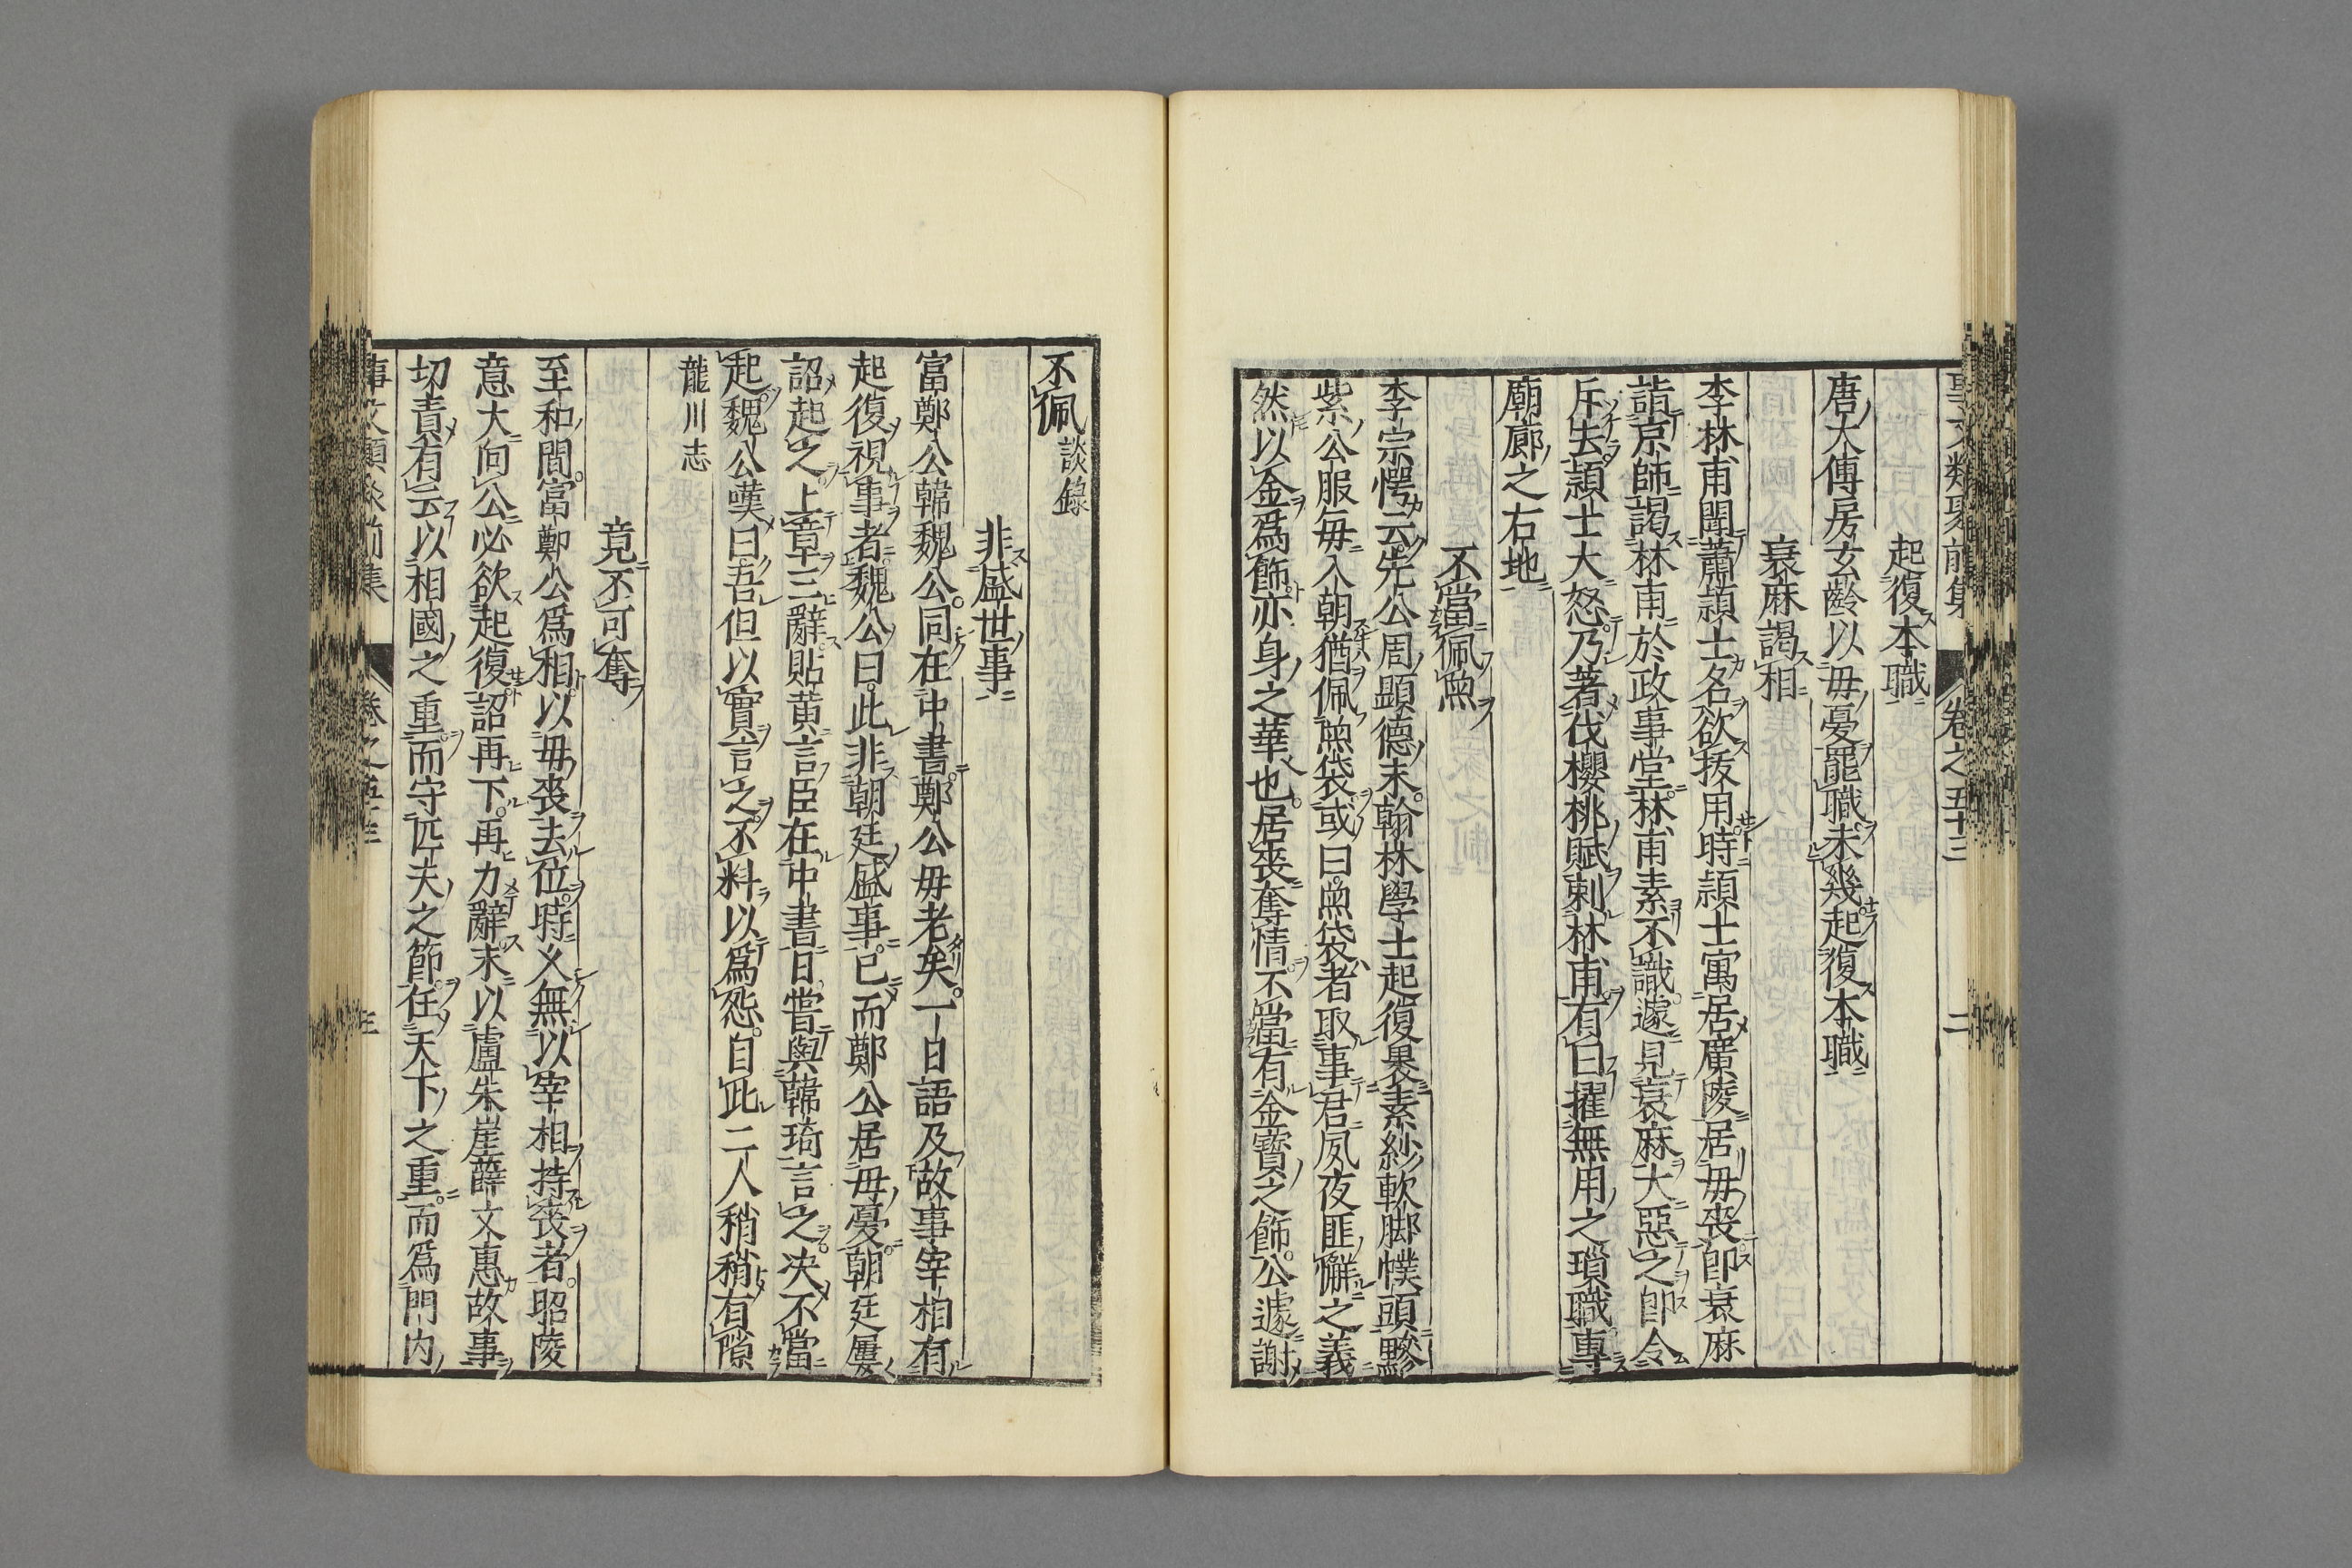 事文類聚前集 卷之五十三 二
起復本職
唐大傅房玄齡以毋憂罷職未幾起復本職
衰麻謁相
李林甫聞蕭穎士名欲拔用時穎士寓居廣陵居毋喪卽衰麻
詣京師謁林甫於政事堂林甫素不識遽見衰麻大惡之卽令
斥去穎士大怒乃著伐櫻桃賦刺林甫有曰擢無用之瑣職專
廟廊之右地
不當佩魚
李宗愕云先公周顯德末翰林學士起復裹素紗軟脚幞頭黲
紫公服毎入朝猶佩魚袋或曰魚袋者取事君夙夜匪懈之義
然以金爲飾亦身之華也居喪奪情不當有金寶之飾公遽謝
不佩 談錄
非盛世事
富鄭公韓魏公同在中書鄭公毋老矣一日語及故事宰相有
起復視事者魏公曰此非朝廷盛事已而鄭公居毋憂朝廷屢
詔起之上章三辭貼黄言臣在中書日嘗與韓琦言之决不當
起魏公嘆曰吾但以實言之不料以爲怨自此二人稍稍有隙
龍川志
竟不可奪
至和間富鄭公爲相以毋喪去位時乂無以宰相持喪者昭陵
意大向公必欲起復詔再下再力辭末以盧朱崖薛文惠故事
切責有云以相國之重而守匹夫之節任天下之重而爲門内
事文類聚前集 卷之五十三 三